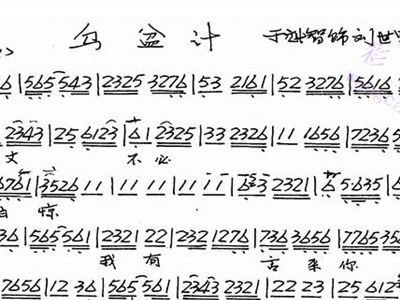 乌盆计 于魁智饰刘世
6 | 565 543 | 2325 3276 | 53 2161 | 52 3276 | 5616
2343 | 25 6123 | 61 2325 | 33 2326 | 11 1656 | 72365
文 不必
6761 | 3526 11 | 11 11 | 11 11 | 643 2321 | 6 5635 | 6
惊
36 | 565 561 | 2321 22 | 232 1276 | 736 3656 | 7765 35
我有 言来你
7656 | 12 36 | 565 561 | 2343 2321 | 22 23 | 25 6